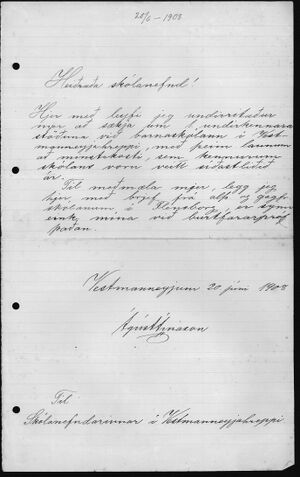 20/6 – 1908
Heiðraða skólanefnd!
Hjer með leyfi jeg undirritaður
mjer að sækja um 1. underkennara
stöðuna við barnaskólann í Vest-
manneyjahreppi, með þeim launum
að minnsta kosti, sem kennurum
skólans vóru veitt síðastliðið
ár.
Til meðmæla mjer, legg jeg
hjer með brjef frá alþ. og gagnfr.
skólanum í Flensborg, er sýnir
eink. mína við burtfararpróf
þaðan.
Vestmanneyjum 20 júní 1908
Ágúst Árnason
Til
Skólanefndarinnar í Vestmanneyjahreppi